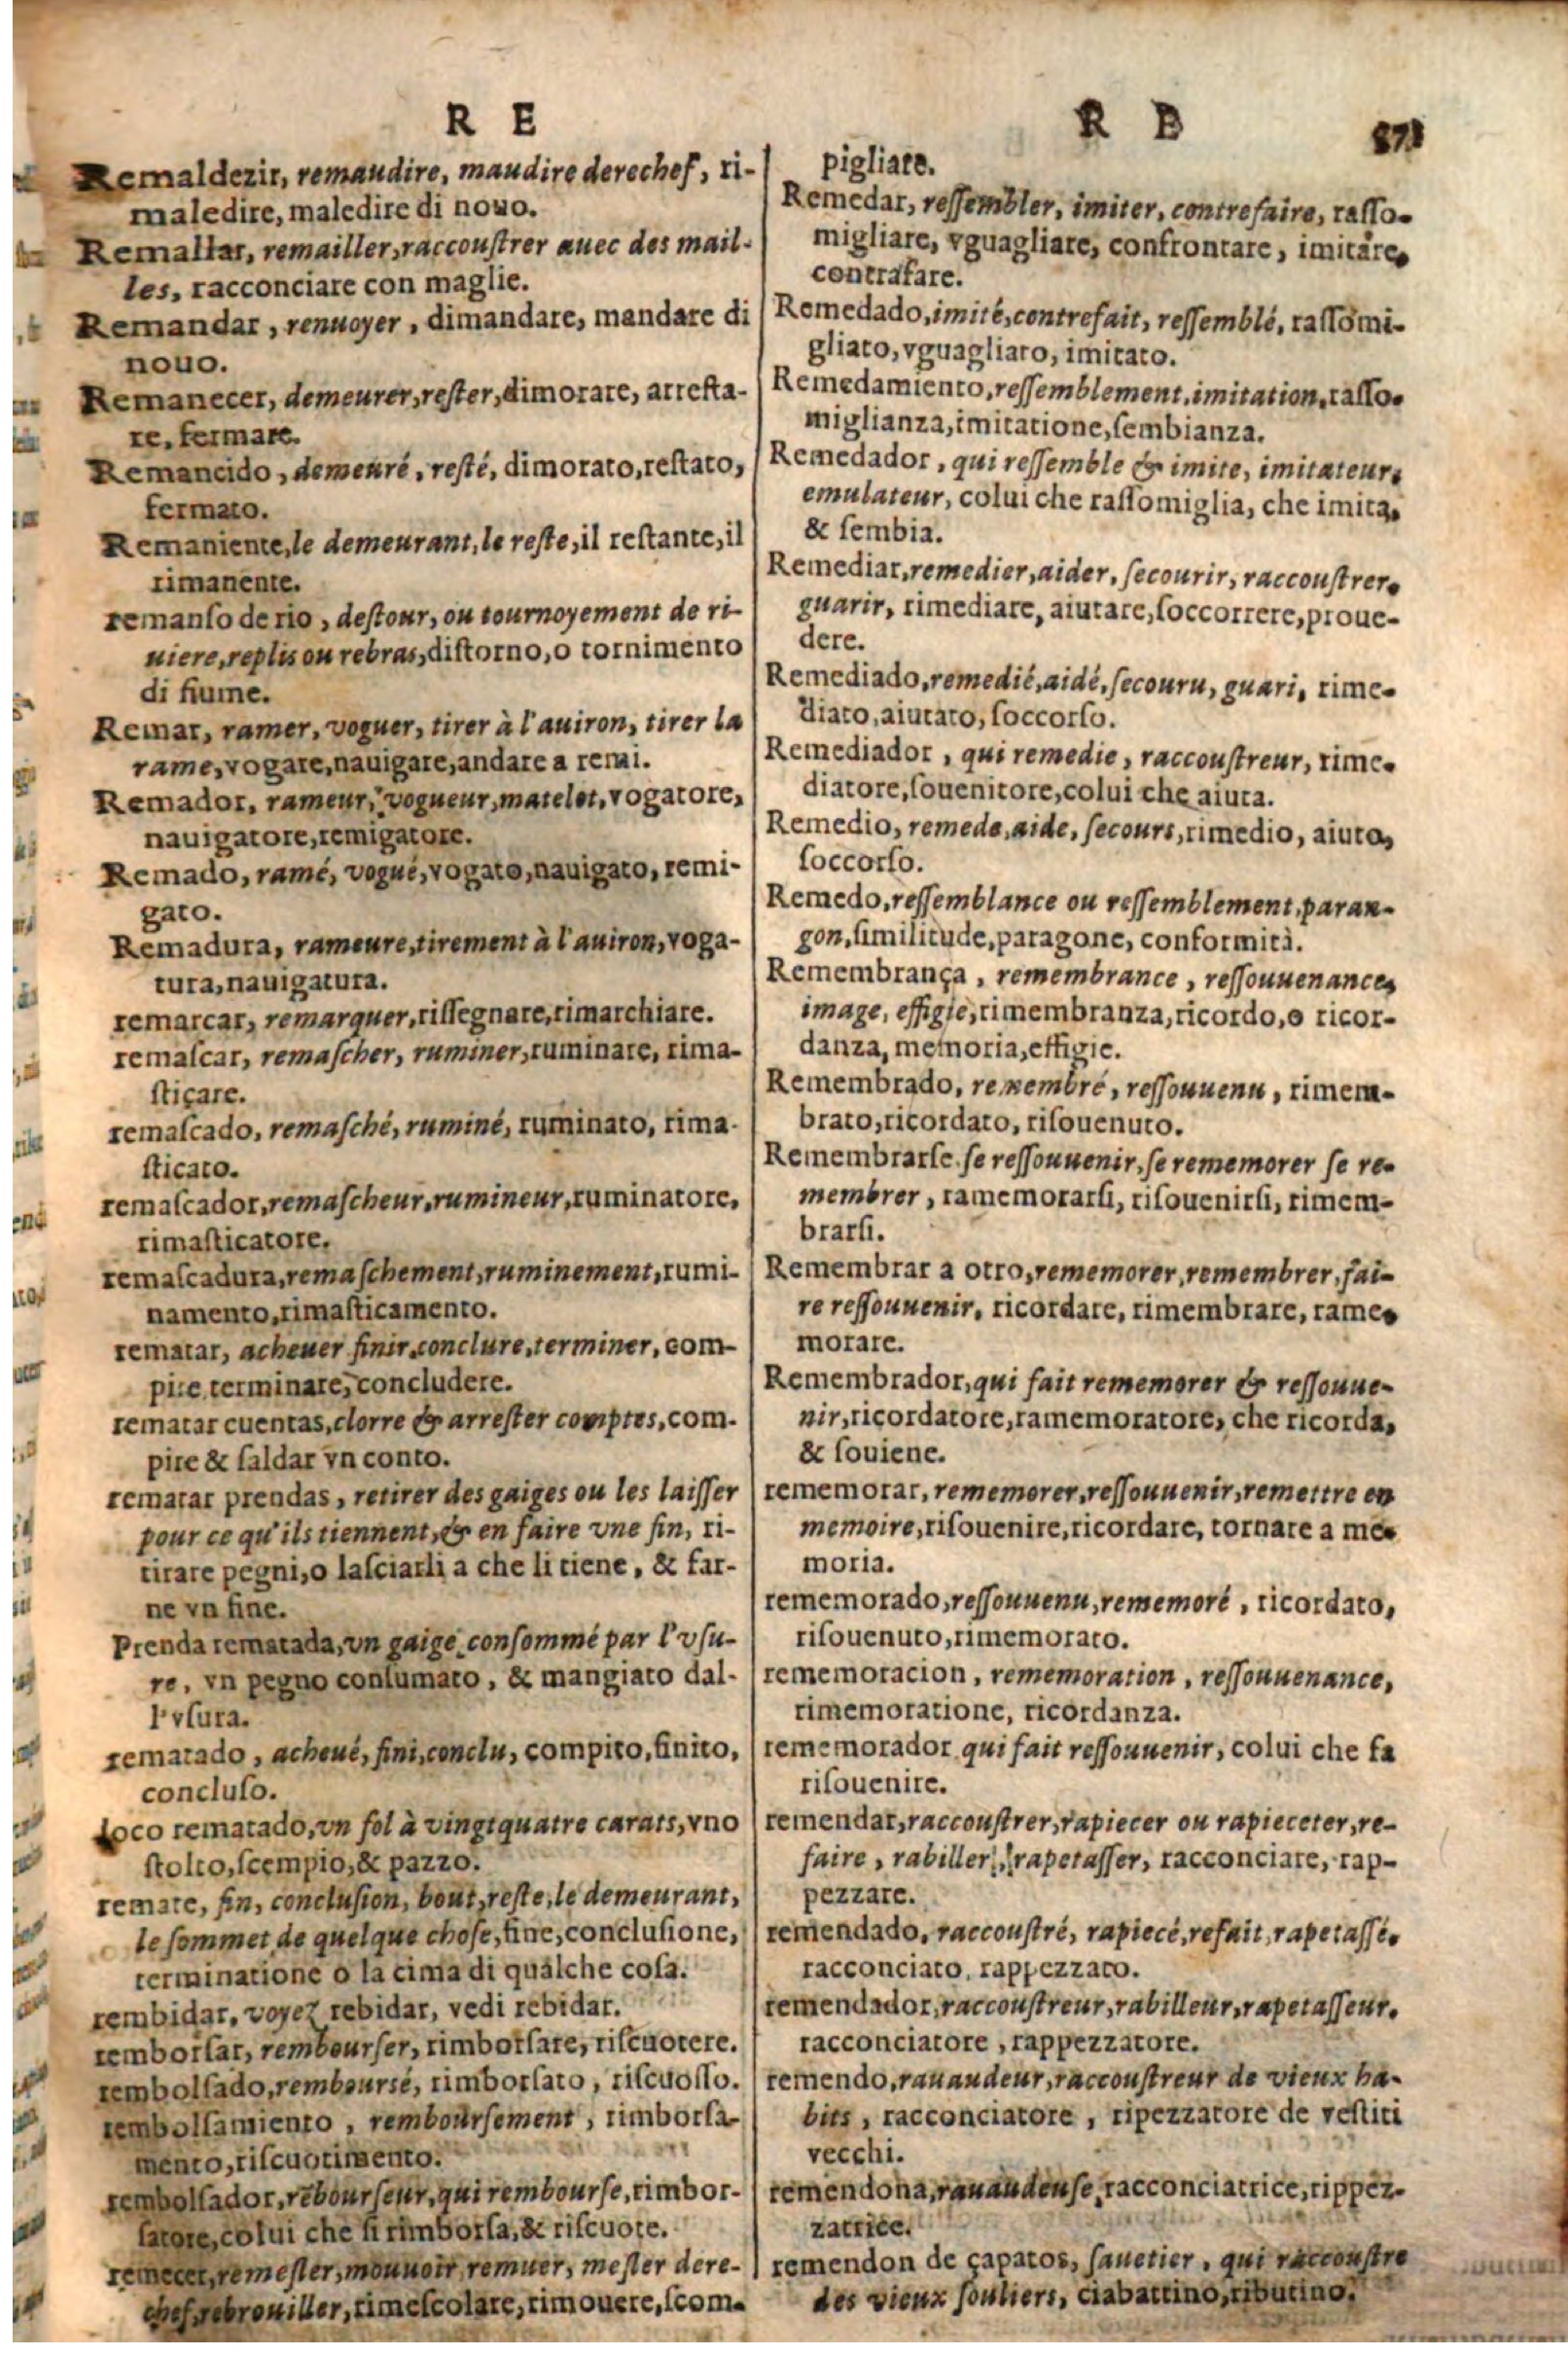 R E
Remaldezir, remaudire, maudire derechef, ri-
maledire, maledire di nouo.
Remallar, remailler, raccouſtrer auec des mail-
les, racconciare con maglie.
Remandar, renuoyer, dimandare, mandare di
nouo.
Remanecer, demeurer, reſter, dimorare, arreſta-
re, fermare.
Remancido, demeuré, reſté, dimorato, reſtato,
fermato.
Remaniente, le demeurant, le reſte, il reſtante, il
rimanente.
remanſo de rio, deſtour, ou tournoyement de ri-
uiere, replis ou rebras, diſtorno, o tornimento
di fiume.
Remar, ramer, voguer, tirer à l'auiron, tirer la
rame, vogare, nauigare, andare a remi.
Remador, rameur, vogueur, matelot, vogatore,
nauigatore, remigatore.
Remado, ramé, vogué, vogato, nauigato, remi-
gato.
Remadura, rameure, tirement à l'auiron, voga-
tura, nauigatura.
remarcar, remarquer, riſſegnare, rimarchiare.
remaſcar, remaſcher, ruminer, ruminare, rima-
ſticare.
remaſcado, remaſché, ruminé, ruminato, rima-
ſticato.
remaſcador, remaſcheur, rumineur, ruminatore,
rimaſticatore.
remaſcadura, remaſchement, ruminement, rumi-
namento, rimaſticamento.
rematar, acheuer finir, conclure, terminer, com-
pire, terminare, concludere.
rematar cuentas, clorre & arreſter comptes, com-
pire & ſaldar vn conto.
rematar prendas, retirer des gaiges ou les laiſſer
pour ce qu'ils tiennent, & en faire vne fin, ri-
tirare pegni, o laſciarli a che li tiene, & far-
ne vn fine.
Prenda rematada, vn gaige conſommé par l'vſu-
re, vn pegno conſumato, & mangiato dal-
l'vſura.
rematado, acheué, fini, conclu, compito, finito,
concluſo.
Loco rematado, vn fol à vingtquatre carats, vno
ſtolto, ſcempio, & pazzo.
remate, fin, concluſion, bout, reſte, le demeurant,
le ſommet de quelque choſe, fine, concluſione,
terminatione o la cima di qualche coſa.
rembidar, voyez rebidar, vedi rebidar.
remborſar, rembourſer, rimborſare, riſcuotere.
rembolſado, rembourſé, rimborſato, riſcuoſſo.
rembolſamiento, rembourſement, rimborſa-
mento, riſcuotimento.
rembolſador, rēbourſeur, qui rembourſe, rimbor-
ſatore, colui che ſi rimborſa, & riſcuote.
remecer, remeſler, mouuoir, remuer, meſler dere-
chef, rebrouiller, rimeſcolare, rimouere, ſcom-
R E 871
pigliare.
Remedar, reſſembler, imiter, contrefaire, raſſo-
migliare, vguagliare, confrontare, imitare,
contrafare.
Remedado, imité, contrefait, reſſemblé, raſſomi-
gliato, vguagliato, imitato.
Remedamiento, reſſemblement, imitation, raſſo-
miglianza, imitatione, ſembianza.
Remedador, qui reſſemble & imite, imitateur,
emulateur, colui che raſſomiglia, che imita,
& ſembia.
Remediar, remedier, aider, ſecourir, raccouſtrer,
guarir, rimediare, aiutare, ſoccorrere, proue-
dere.
Remediado, remedié, aidé, ſecouru, guari, rime-
diato, aiutato, ſoccorſo.
Remediador, qui remedie, raccouſtreur, rime-
diatore, ſouenitore, colui che aiuta.
Remedio, remede, aide, ſecours, rimedio, aiuto,
ſoccorſo.
Remedo, reſſemblance ou reſſemblement, paran-
gon, ſimilitude, paragone, conformità.
Remembrança, remembrance, reſſouuenance,
image, effigie, rimembranza, ricordo, o ricor-
danza, memoria, effigie.
Remembrado, remembré, reſſouuenu, rimem-
brato, ricordato, riſouenuto.
Remembrarſe. ſe reſſouuenir, ſe rememorer ſe re-
membrer, ramemorarſi, riſouenirſi, rimem-
brarſi.
Remembrar a otro, rememorer, remembrer, fai-
re reſſouuenir, ricordare, rimembrare, rame-
morare.
Remembrador, qui fait rememorer & reſſouue-
nir, ricordatore, ramemoratore, che ricorda,
& ſouiene.
rememorar, rememorer, reſſouuenir, remettre en
memoire, riſouenire, ricordare, tornare a me-
moria.
rememorado, reſſouuenu, rememoré, ricordato,
riſouenuto, rimemorato.
rememoracion, rememoration, reſſouuenance,
rimemoratione, ricordanza.
rememorador qui fait reſſouuenir, colui che fa
riſouenire.
remendar, raccouſtrer, rapiecer ou rapieceter, re-
faire, rabiller, rapetaſſer, racconciare, rap-
pezzare.
remendado, raccouſtré, rapiecé, refait, rapetaſſé,
racconciato, rappezzato.
remendador, raccouſtreur, rabilleur, rapetaſſeur,
racconciatore, rappezzatore.
remendo, rauaudeur, raccouſtreur de vieux ha-
bits, racconciatore, ripezzatore de veſtiti
vecchi.
remendona, rauaudeuſe, racconciatrice, rippez-
zatrice.
remendon de çapatos, ſauetier, qui raccouſtre
des vieux ſouliers, ciabattino, ributino.